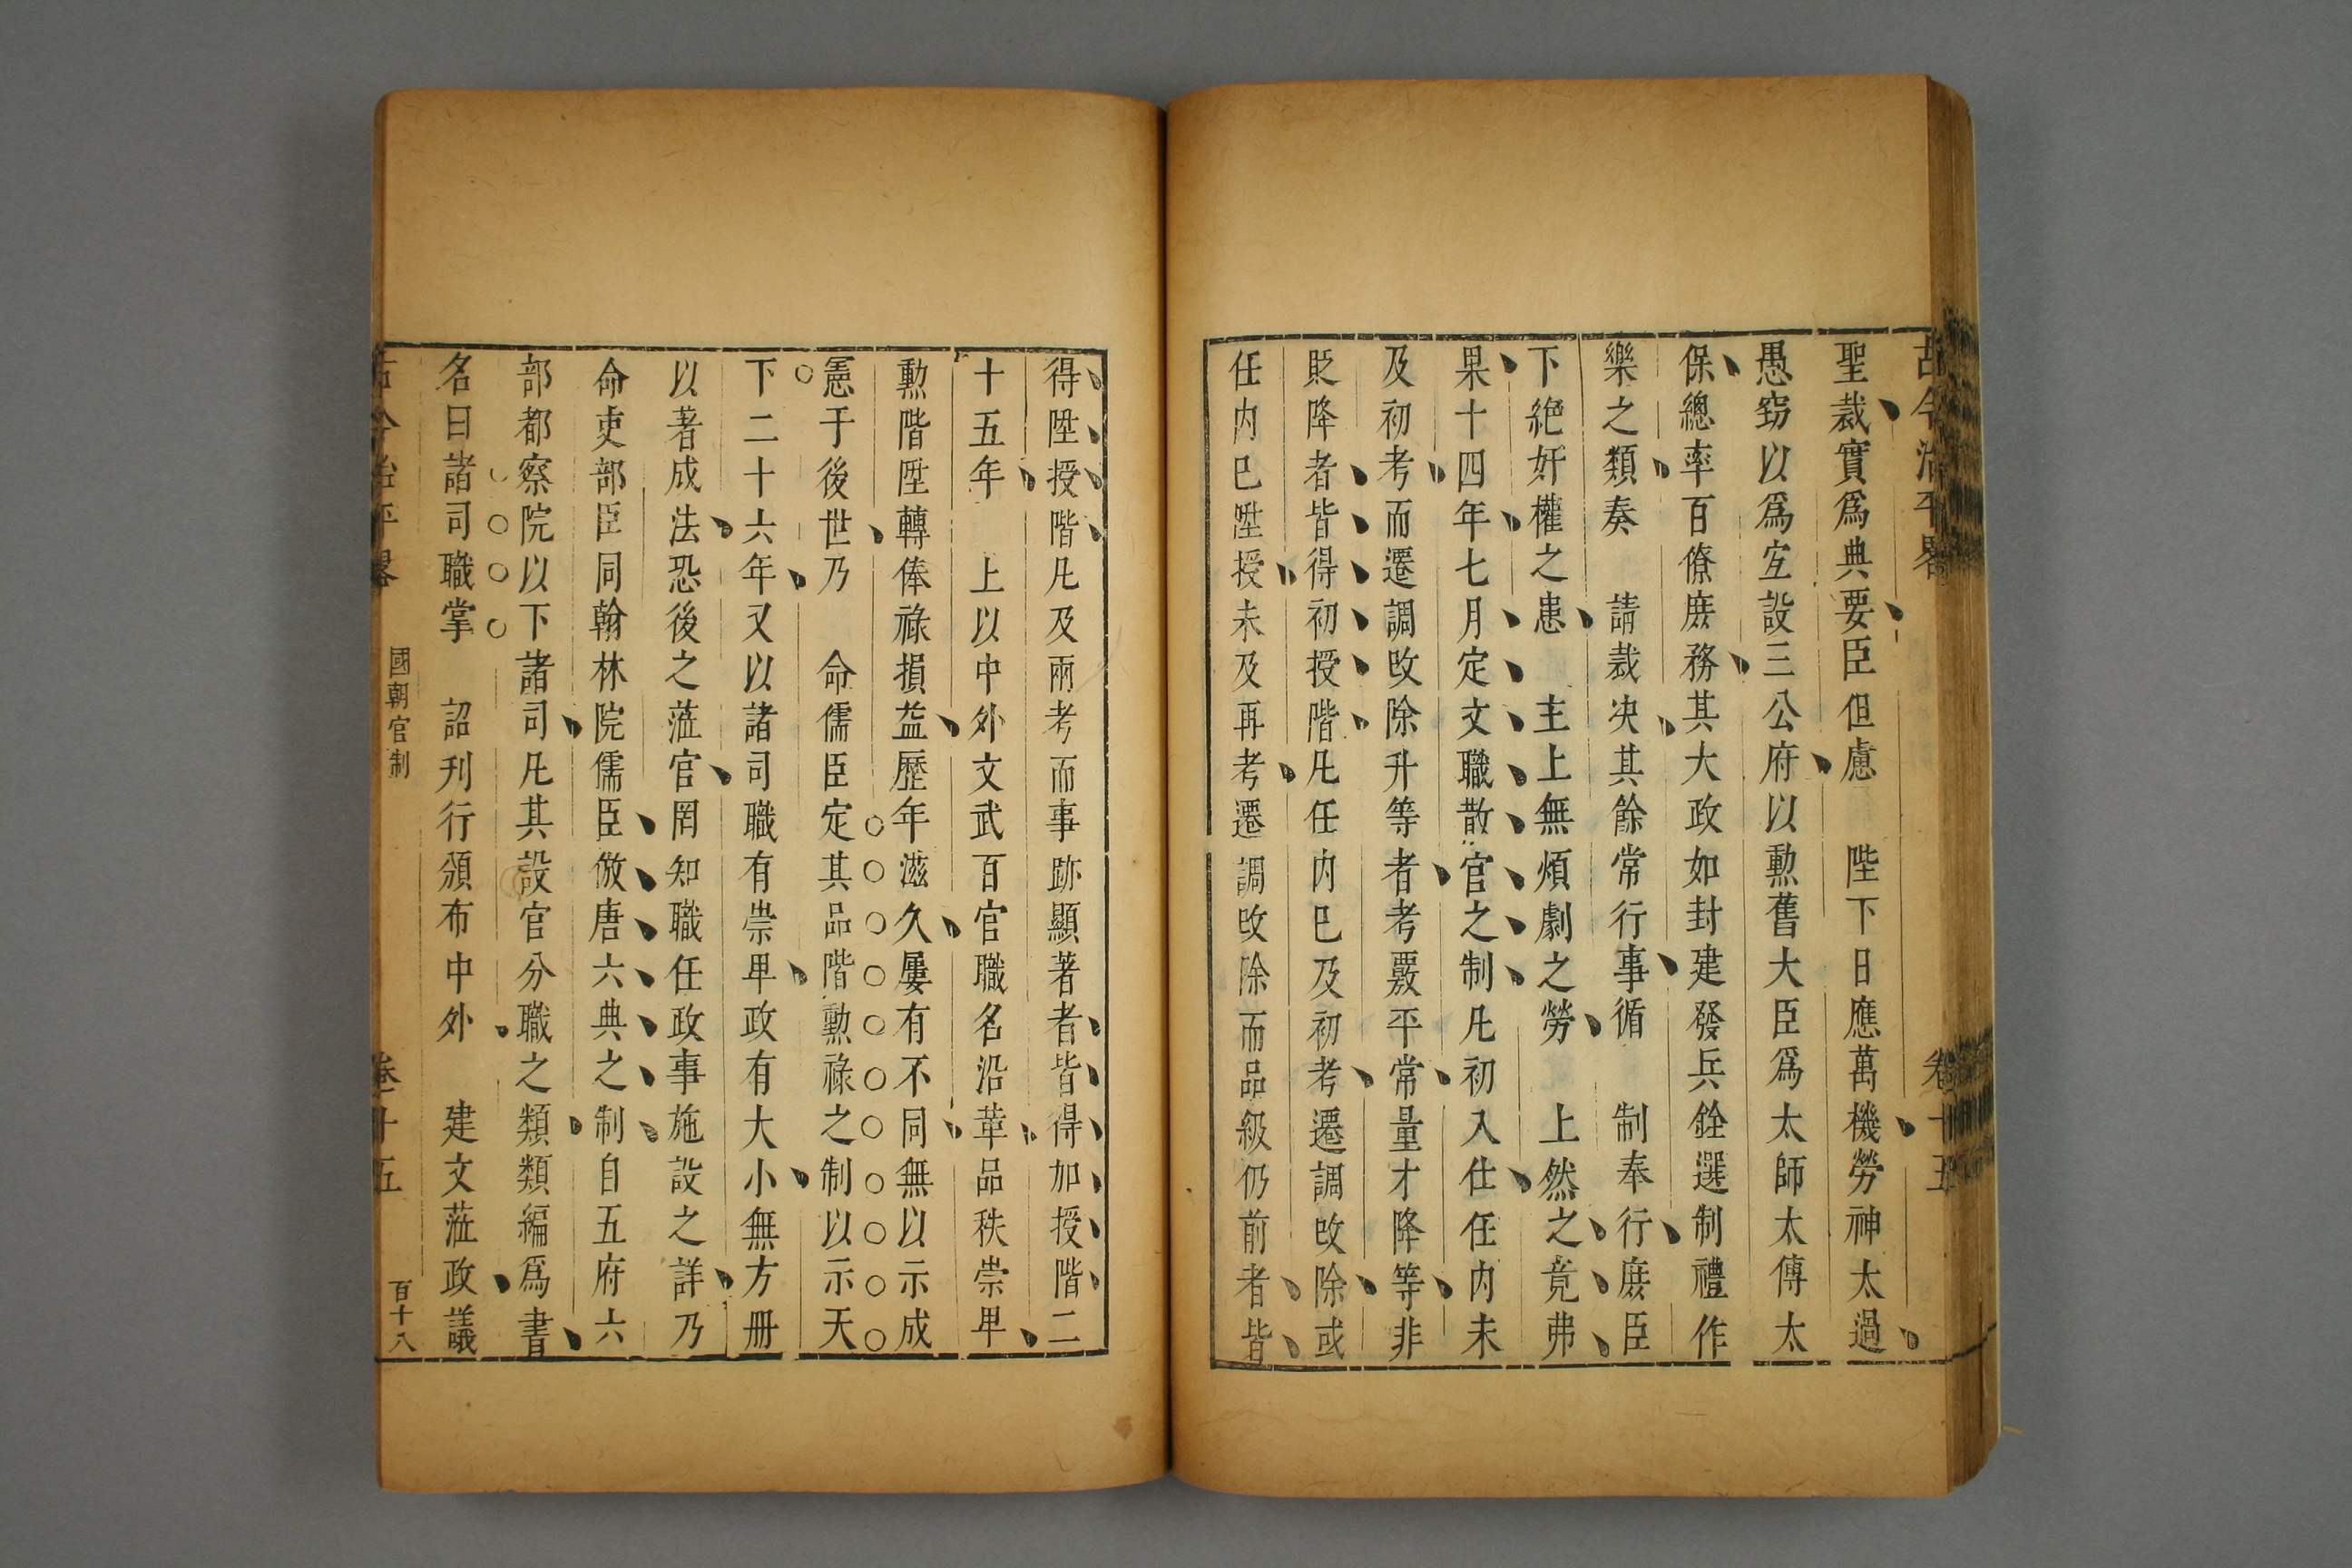 古今治平畧 卷十五
聖裁實爲典要臣但慮 陛下日應萬機勞神太過
愚窃以爲宜設三公府以勲舊大臣爲太師太傅太
保總率百僚庶務其大政如封建發兵銓選制禮作
樂之類奏 請裁决其餘常行事循 制奉行庶臣
下絶奸權之患 主上無煩劇之勞 上然之竟弗
果十四年七月定文職散官之制凡初入仕任内未
及初考而遷調改除升等者考覈平常量才降等非
貶降者皆得初授階凡任内已及初考遷調改除或
任内已陞授未及再考遷調改除而品級仍前者皆
得陞授階凡及兩考而事跡顯著者皆得加授階二
十五年 上以中外文武百官職名沿革品秩崇卑
勲階陞轉俸祿損益歷年滋久屢有不同無以示成
憲于後世乃 命儒臣定其品階勲祿之制以示天
下二十六年又以諸司職有崇卑政有大小無方册
以著成法恐後之蒞官罔知職任政事施設之詳乃
命吏部臣同翰林院儒臣倣唐六典之制自五府六
部都察院以下諸司凡其設官分職之類類編爲書
名曰諸司職掌 詔刋行頒布中外 建文蒞政議
古今治平畧 國朝官制 卷十五 百十八